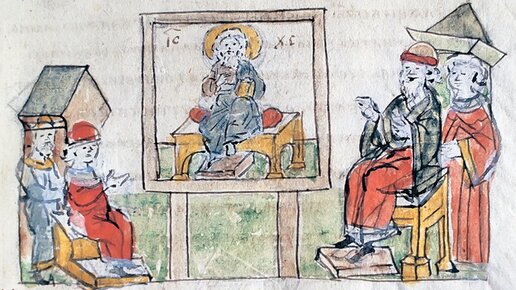 І҃С ХС